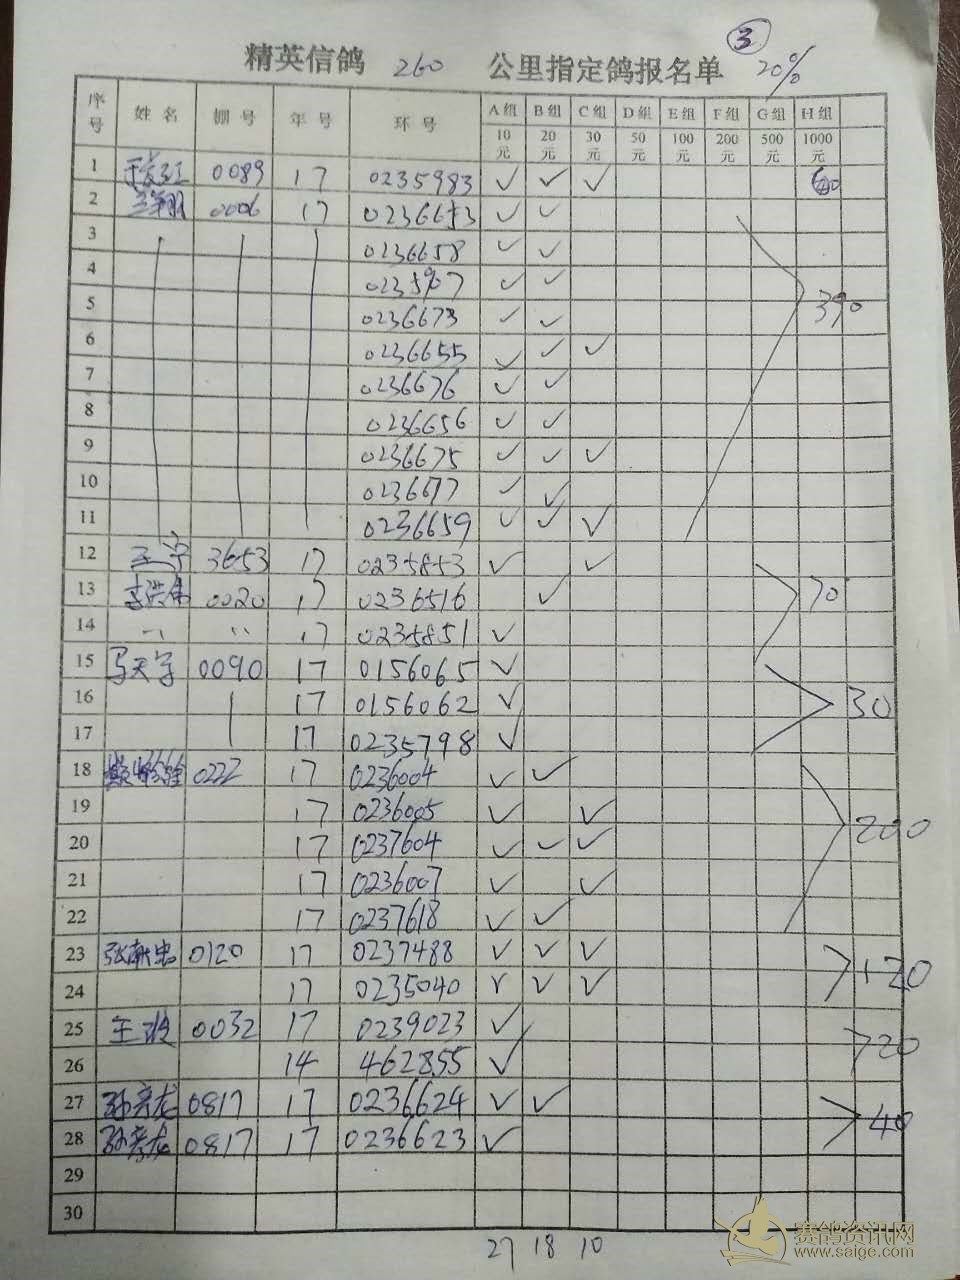 ③
精英信鸽 260 公里指定鸽报名单 20%
序号 姓名 棚号 年号 环号 A组 B组 C组 D组 E组 F组 G组 H组
10元 20元 30元 50元 100元 200元 500元 1000元
1 0089 17 0235983 ✓ ✓ ✓
2 0006 17 0236653 ✓ ✓
3 0236658 ✓ ✓
4 ✓ ✓
5 0236673 ✓ ✓ 390
6 0236655 ✓ ✓ ✓
7 0236676 ✓ ✓
8 0236656 ✓ ✓
9 0236675 ✓ ✓ ✓
10 0236677 ✓ ✓
11 0236659 ✓ ✓ ✓
12 王宇 3653 17 0235853 ✓ ✓
13 李洪伟 0020 17 0236516 ✓ 70
14 〃 〃 17 0235851 ✓
15 马天宇 0090 17 0156065 ✓
16 17 0156062 ✓ 30
17 17 0235798 ✓
18 0222 17 0236004 ✓ ✓
19 17 0236005 ✓ ✓
20 17 0237604 ✓ ✓ ✓ 200
21 17 0236007 ✓ ✓
22 17 0237618 ✓ ✓
23 张献忠 0120 17 0237488 ✓ ✓ ✓
24 17 0235040 ✓ ✓ ✓ 120
25 王波 0032 17 0239023 ✓ 20
26 14 462855 ✓
27 孙彦龙 0817 17 0236624 ✓ ✓ 40
28 孙彦龙 0817 17 0236623 ✓
29
30
27 18 10
赛鸽资讯网
www.saige.com